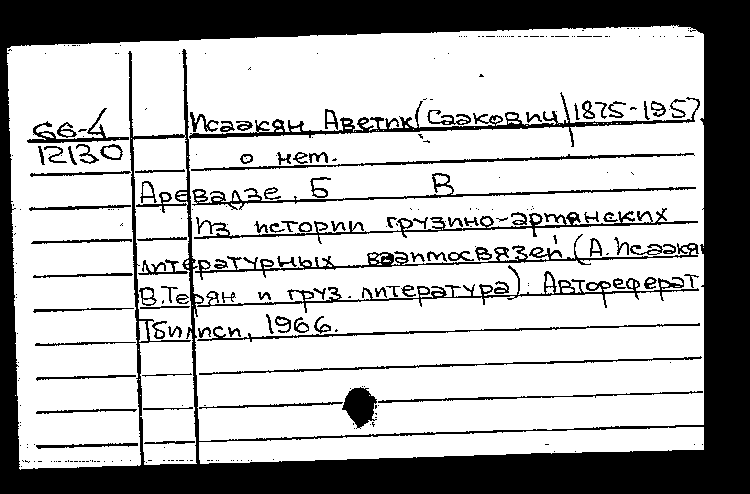 66-4
12130
Исаакян, Аветик (Саакович) 1875-1957.
о нем.
Аревадзе, Б В
Из истории грузино-армянских
литературных взаимосвязей. (А. Исаакян
В. Терян и груз. литература). Автореферат.
Тбилиси, 1966.